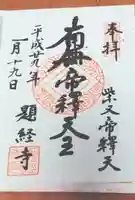 奉拝
柴又帝釈天
南無帝釈天王
平成廿九年
一月十九日
題経寺